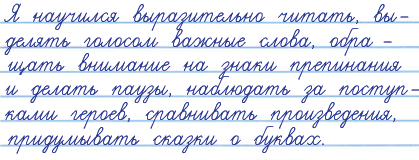 Я научился выразительно читать, вы-
делять голосом важные слова, обра-
щать внимание на знаки препинания
и делать паузы, наблюдать за поступ-
ками героев, сравнивать произведения,
придумывать сказки о буквах.